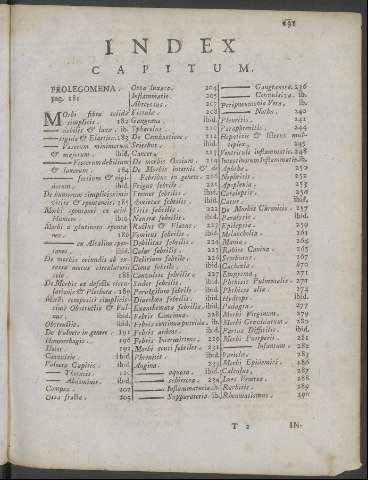 INDEX
CAPITUM.
PROLEGOMENA.
pag. 181
Morbi fibræ solidæ
simplicis. 182
debilis & laxæ. ib.
rigidæ & Elasticæ. 183
Vasorum minimorum
& majorum ibid.
Viscerum debilium
& laxorum 184
fortium & rigi-
dorum. ibid.
De humorum simplicissimis
vitiis & spontaneis. 185
Morbi spontanei ex acido
Humore ib
Morbi a glutinoso sponta-
neo. 186
ex Alcalino spon-
taneo. ibid.
De morbis oriundis ab ex-
cessu motus circulatorii
solo 188
De Morbis ex defectu circu-
lationis & Plethora. 189
Morbi compositi simplicis-
simi Obstructio & Vul-
nus. ibid.
Obstructio. ibid
De Vulnere in genere. 191
Hæmorrhagia. 196
Dolor 192
Convulsio ibid.
Vulnera Capitis. ibid
Thoracis
Abdominis ibid.
Contusa 202
Ossa fracta 203
Ossa luxata. 204
Inflammatio. 205
Abscessus 207
Fistulæ
Gangræna. ibid.
Sphacelus 210
De Combustione. 211
Scirrhus. ibid.
Cancer. 213
De Morbis Ossium. 214
De Morbis internis & de
Febribus in genere.
Frigus febrile. 221
Tremor febrilis. ibid.
Anxietas febrilis ibid.
Sitis febrilis 222
Nausea febrilis ibid.
Ructus & Flatus 223
Vomitus febrilis. ibid.
Debilitas febrilis 224
Calor febrilis ibid.
Delirium febrile 226
Coma febrile. ibid.
Convulsio febrilis 227
Sudor febrilis ibid.
Pervigilium febrile. ibid.
Diarrhœa febrilis ibid.
Exanthemata febrilia. ibid.
Febris Continua 228
Febris continua putrida. ib.
Febris ardens. ibid.
Febris Intermittens. 229
Morbi acuti febriles 231
Phrenitis ibid.
Angina 233
aquosa. ibid.
scirrhosa 234
Inflammatoria. ib.
Suppuratoria. ib.
Gangrænosa. 236
Convulsiva. ib.
Peripneumonia Vera. ib.
Notha. 240
Pleuritis. 241
Paraphrenitis. 244
Hepatitis & Icterus mul-
tiplex. 245
Ventriculi inflammatio. 248
Intestinorum Inflammatio. ib.
Aphthæ 250
Nephritis. 252
Apoplexia. 253
Catalepsis. 256
Carus. ibid.
De Morbis Chronicis. 257
Paralysis ibid.
Epilepsia. 259
Melancholia. 261
Mania. 264
Rabies Canina. 265
Scorbutus 267
Cachexia 270
Empyema. 271
Phthisis Pulmonalis 272
Phthisis alia. 274
Hydrops. ibid.
Podagra. 277
Morbi Virginum 279
Morbi Gravidarum 280
Partus Difficilis. ibid.
Morbi Puerperii. 281
Infantum. 282
Variolæ. 283
Morbi Epidemici 286
Calculus. 287
Lues Venerea. 288
Rachitis. 289
Rheumatismus. 290
T 2
IN-